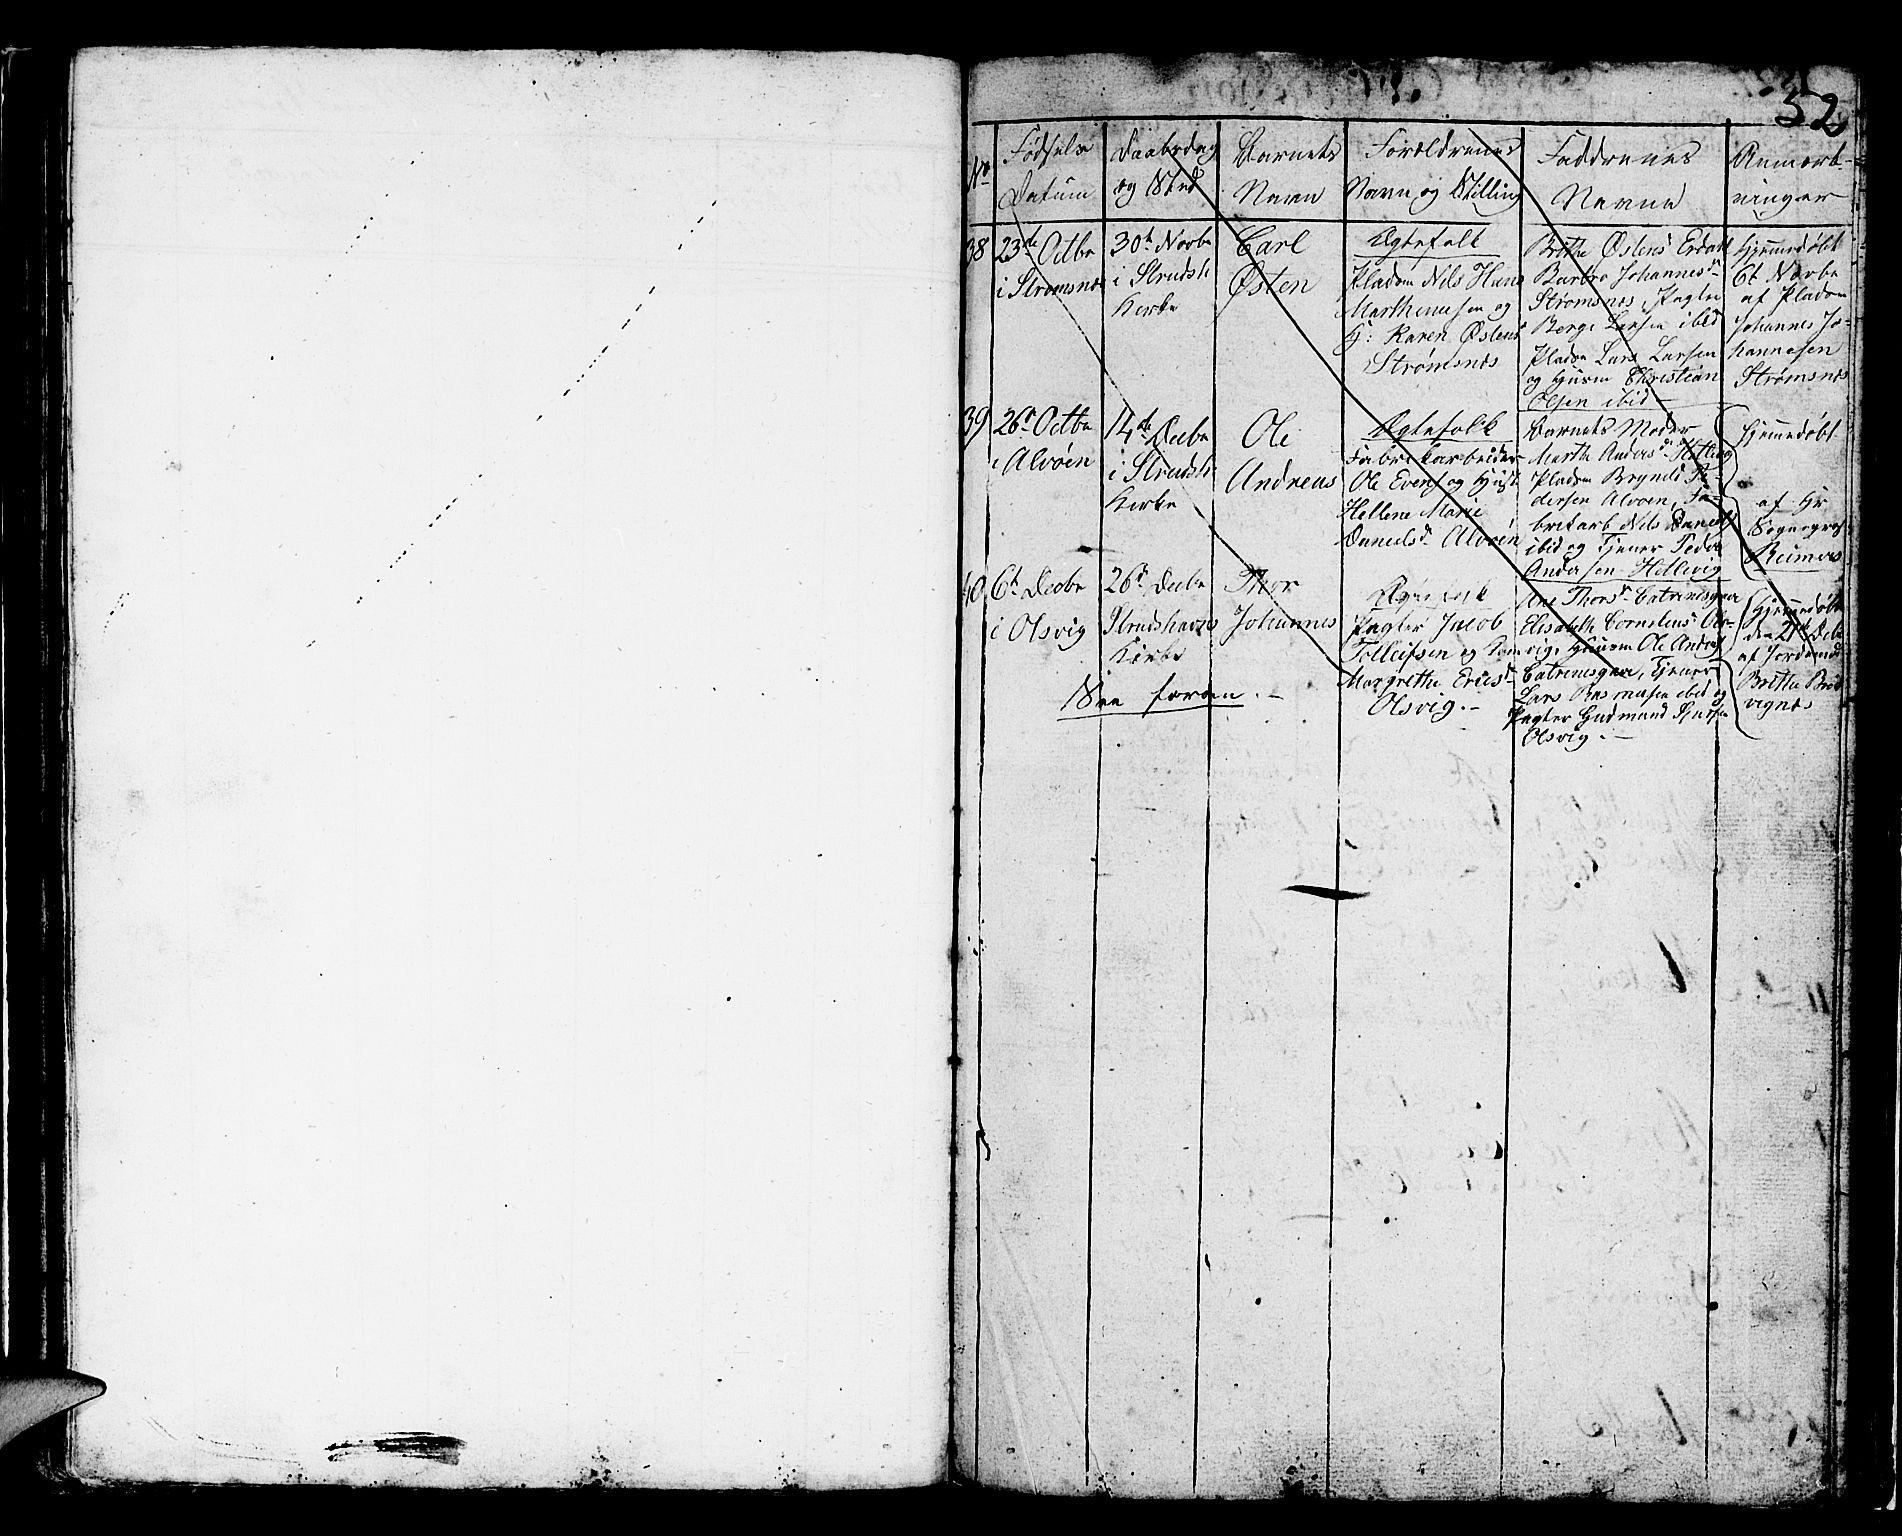 52
No
Fødsels
Datum
Daabsdag
og Sted
Barnets
Navn
Forældrenes
Navn og Stilling
Faddrenes
Navne
Anmærk-
ninger
38
23de Octbr
i Strømsnes
30te Novbr
i Strudsh
Kirke
Carl
Østen
Ægtefolk
Pladsm Nils Hans
Marthinusen og
H: Karen Østens
Strømsnes
Brithe Østensd Erdahl
Barbro Johannesd
Strømsnes, Pagter
Berge Larsen ibid
Pladsm Lars Larsen
og Huusm Christian
Olsen ibid
Hjemmedøbt
6te Novbr
af Pladsm
Johannes Jo-
hannesen
Strømsnes
39
26d Octbr
i Alvøen
14de Decbr
i Strudsh
Kirke
Ole
Andreas
Ægtefolk
Fabrikarbeider
Ole Evens og Hust
Hellene Marie
Danielsd Alvøen
Barnets Moder
Marthe Andersd Hetlevig
Pladsm Bryneld Pe-
dersen Alvøen, Fa-
brikarb Nils Daniels
ibid og Tjener Peder
Andersen Hellevig
Hjemmedøbt
af Hr
Sognepræst
Reimers
40
6te Decbr
i Olsvig
26d Decbr
Strudshavns
Kirke
Thor
Johannes
Ægtefolk
Pagter Jacob
Tolleifsen og Kone
Margrethe Ericsd
Olsvig.
Ane Thorsd Catrinesgaar
Elisabeth Corneliusd Ols-
vig, Huusm Ole Anders
Catrinesgaar, Tjener
Lars Rasmusen ibid og
Pagter Gudmund
Olsvig.
Hjemmedøbt
den 21de Decbr
af Jordemod
Brithe Bred
vignes
See foran.